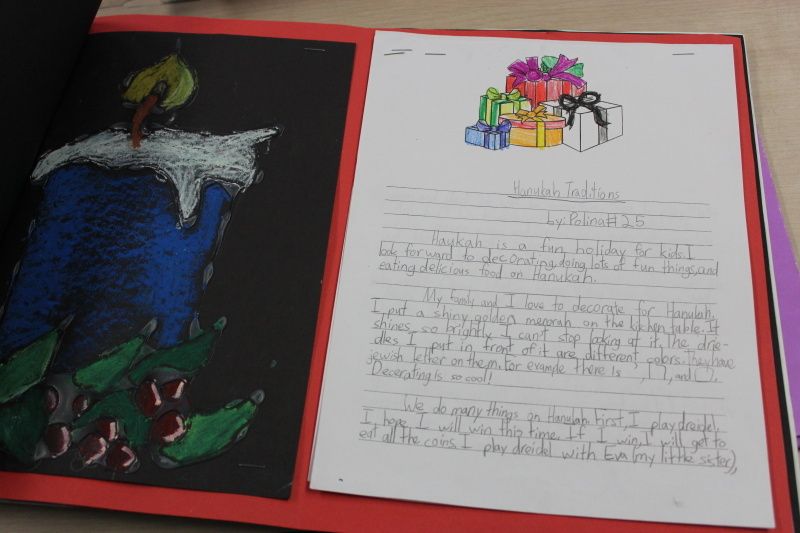 Hanukah Traditions
by: Polina# 25
Haukah is a fun holiday for kids. I
look forward to decorating, doing lots of fun things, and
eating delicious food on Hanukah.
My family and I love to decorate for Hanukah.
I put a shiny golden menorah on the kitchen table. It
shines so brightly I can't stop looking at it. The drie-
dles I put in front of it are different colors. They have
jewish letter on them. For example there is , and
Decorating is so cool!
We do many things on Hanukah. First, I play dreidel.
I hope I will win this time. If I win, I will get to
eat all the coins. I play dreidel with Eva (my little sister),